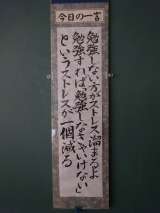 今日の一言
勉強しない方がストレス溜まるよ
勉強すれば、勉強しなきゃいけない
というストレスが一個減る